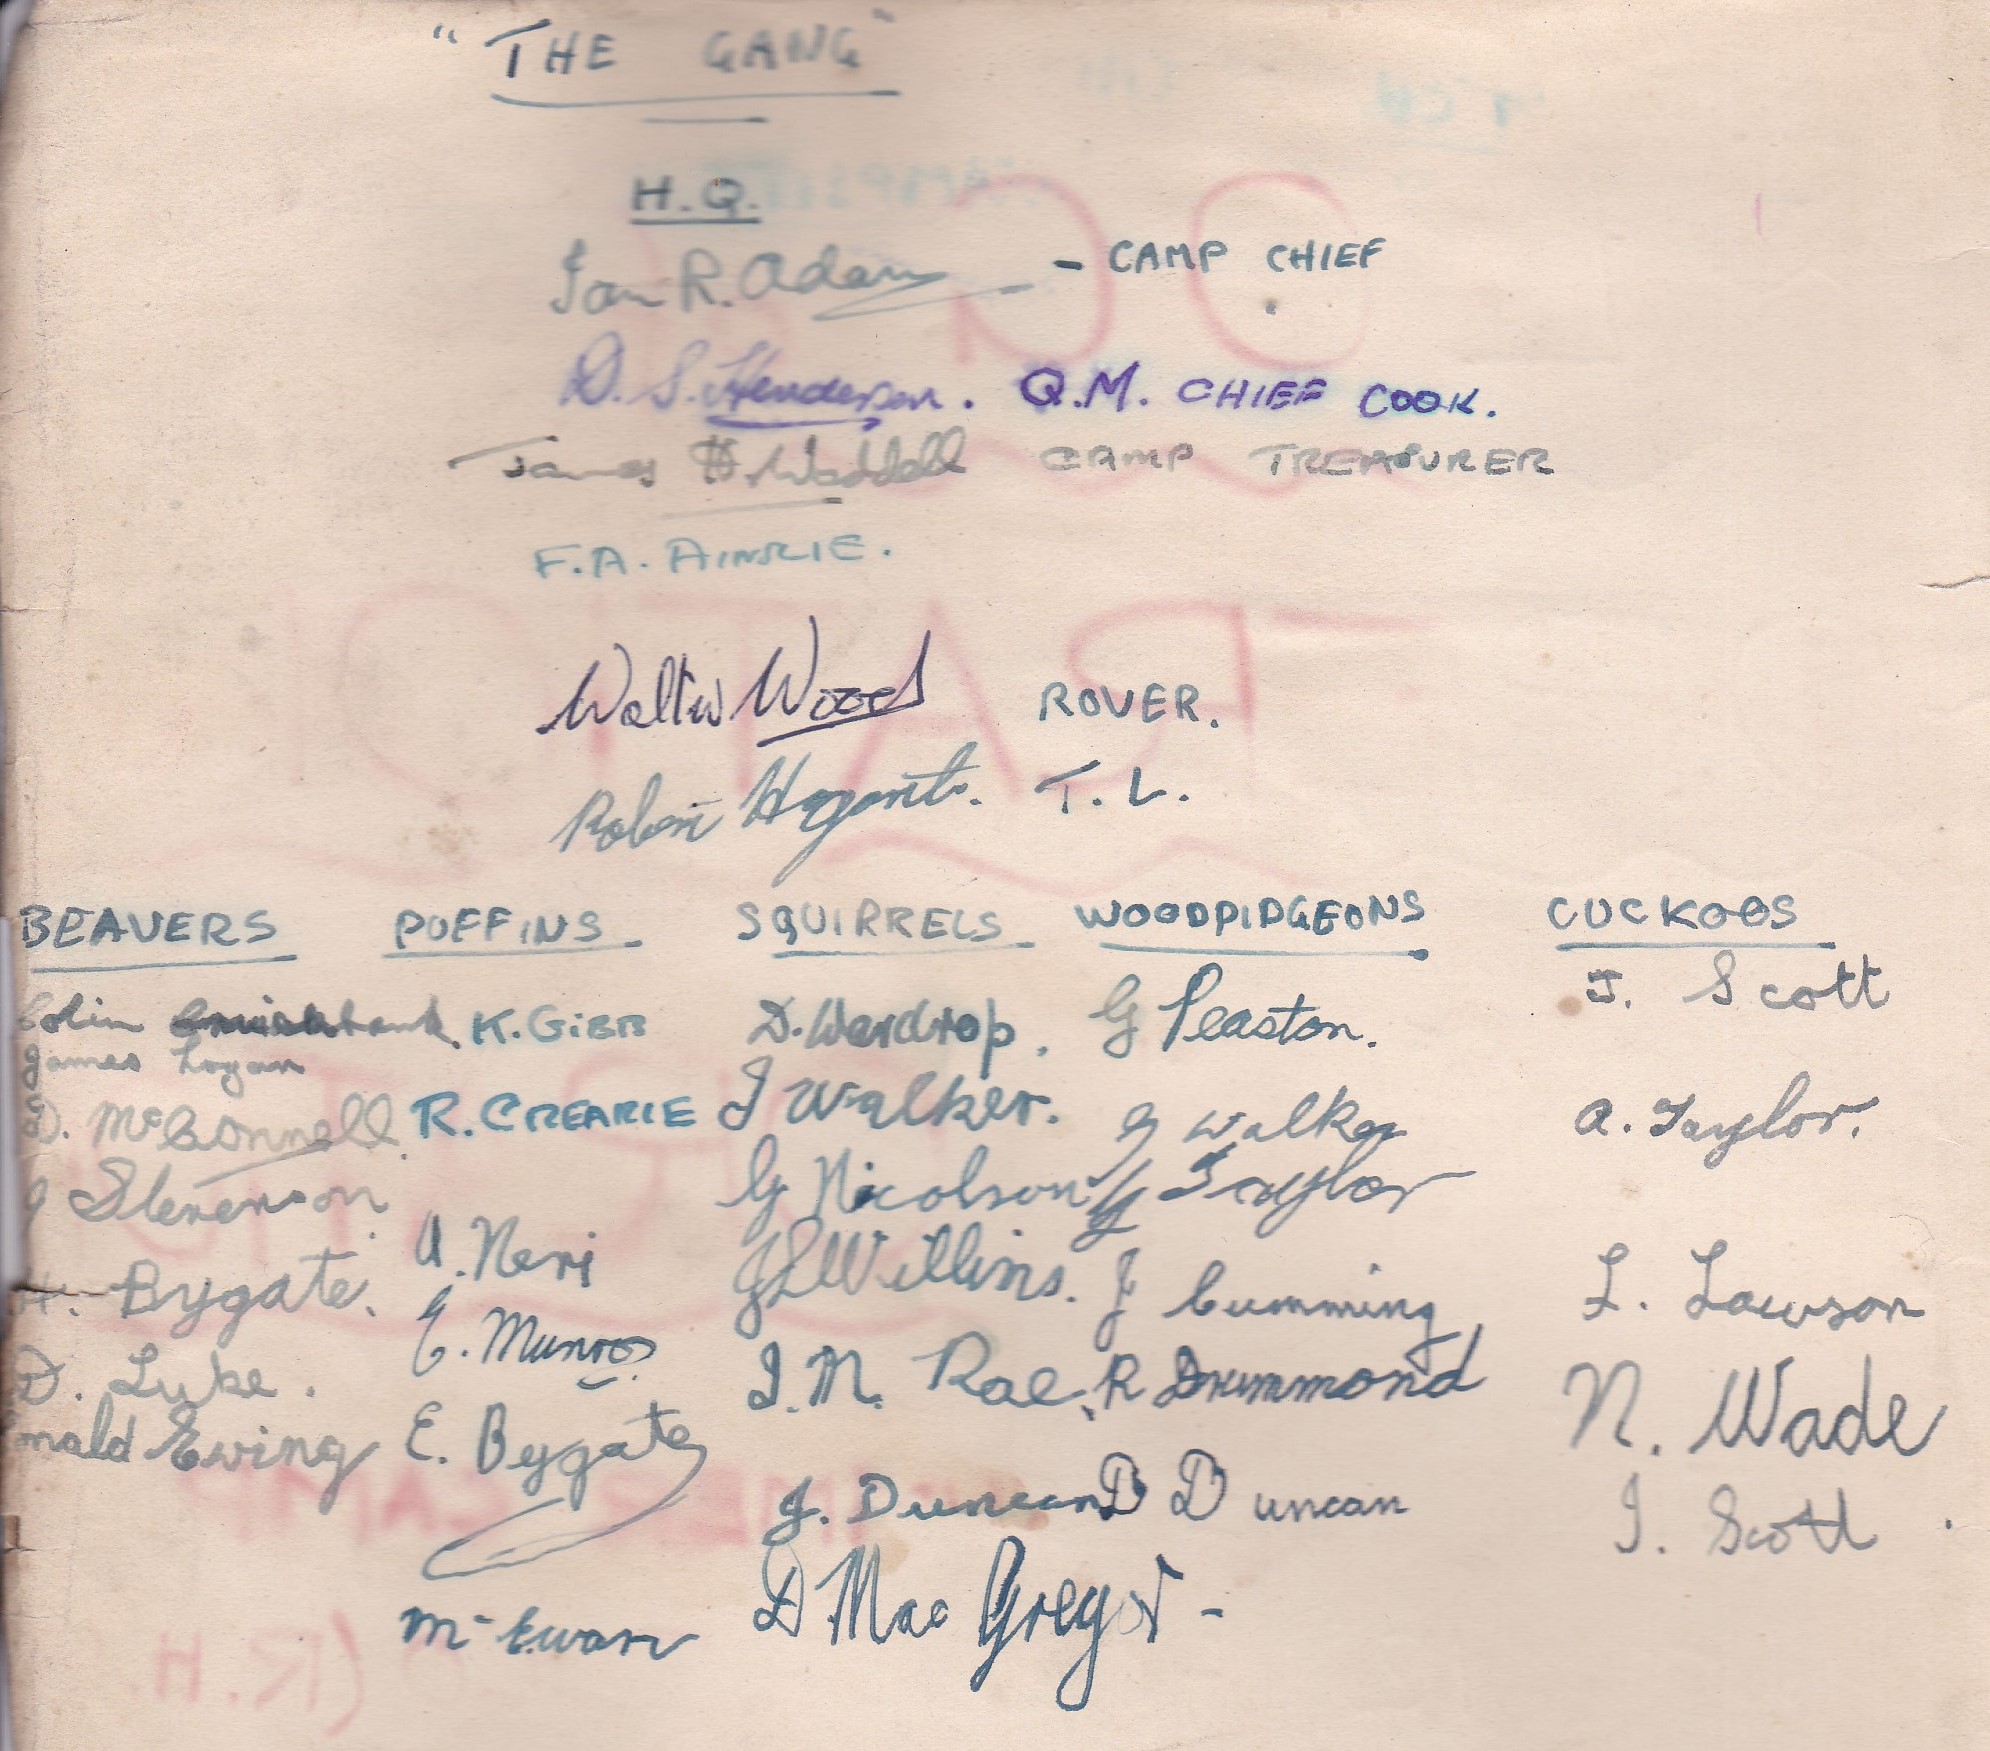 "THE GANG"
H.Q.
Ian R. Adam - CAMP CHIEF
D. S. Henderson. Q.M. CHIEF COOK.
James H. Waddell CAMP TREASURER
F.A. AINSLIE.
Walter Wood ROVER.
Robert Hogarth. T.L.
BEAVERS PUFFINS SQUIRRELS WOODPIDGEONS CUCKOOS
Colin Cruickshank.
James Logan
D. McConnell.
J Stevenson
H. Bygate.
D. Luke.
Ewing
K. GIBB
R. CREARIE
A. Neri
E. Munro.
E. Bygate
Mc Ewan
D. Wardrop.
J Walker.
G Nicolson
J L Willins.
I. M. Rae.
J. Duncan
D Mac Gregor -
G Peaston.
G Walker
G Taylor
J Cumming
R Drummond
D Duncan
J. Scott
A. Taylor.
L. Lawson
N. Wade
I. Scott